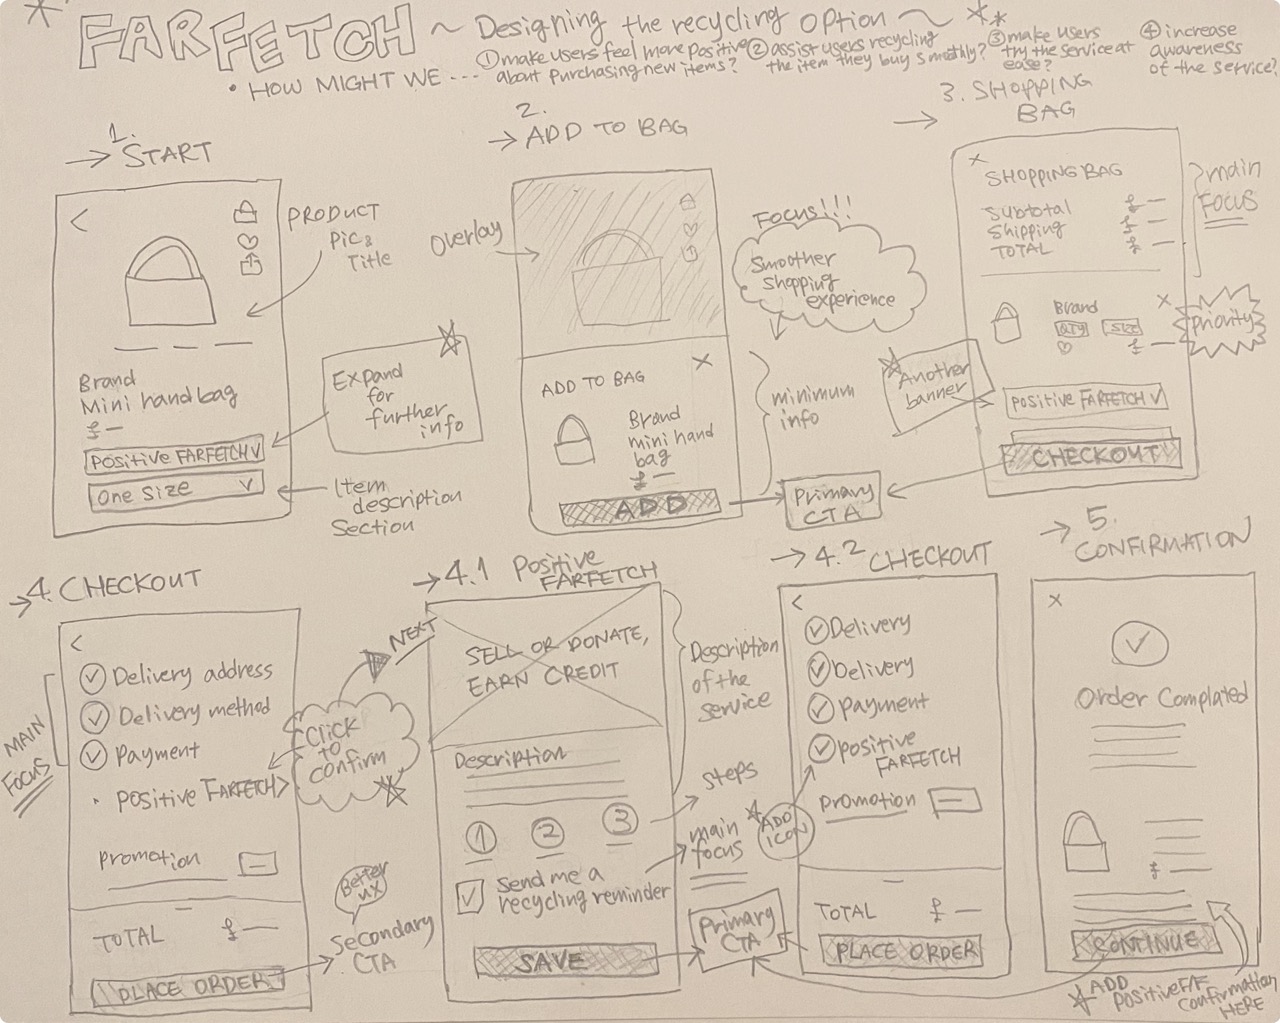 FARFETCH ~ Designing the recycling option ~
• HOW MIGHT WE ...
① make users feel more positive
about purchasing new items?
② assist users recycling
the item they buy smoothly?
③ make users
try the service at
ease?
④ increase
awareness
of the service?
1.
→ START
<
PRODUCT
Pic &
Title
Brand
Mini handbag
£ —
Positive FARFETCH ∨
One Size ∨
Expand
for
further
info
Item
description
Section
2.
→ ADD TO BAG
Overlay
ADD TO BAG
×
Brand
mini hand
bag
£ —
ADD
Focus!!!
Smoother
shopping
experience
minimum
info
Primary
CTA
3. SHOPPING
BAG
→
×
SHOPPING BAG
Subtotal £ —
Shipping £ —
TOTAL £ —
main
FOCUS
Brand ×
QTY SIZE
£ —
Priority
Another
banner
Positive FARFETCH ∨
CHECKOUT
→ 4. CHECKOUT
<
Delivery address
Delivery method
Payment
• Positive FARFETCH >
MAIN
Focus
Click
to
confirm
NEXT
Promotion
TOTAL £ —
PLACE ORDER
Better
UX
Secondary
CTA
→ 4.1 Positive
FARFETCH
SELL OR DONATE,
EARN CREDIT
Description
1 2 3
Send me a
recycling reminder
SAVE
Description
of the
service
Steps
main
focus
Primary
CTA
→ 4.2 CHECKOUT
<
Delivery
Delivery
Payment
Positive
FARFETCH
ADD
ICON
Promotion
TOTAL £ —
PLACE ORDER
→ 5.
CONFIRMATION
×
Order Complated
£ —
CONTINUE
ADD
Positive F/F
Confirmation
HERE